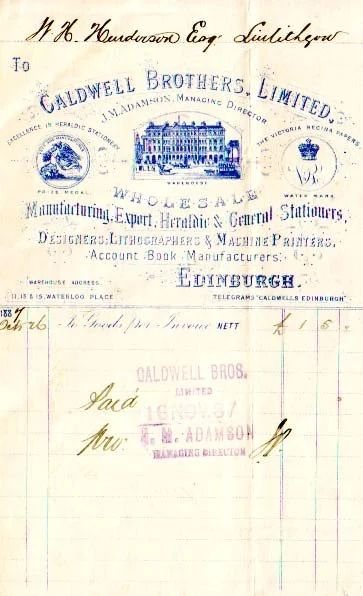 W. H. Henderson Esq. Linlithgow
To
CALDWELL BROTHERS, LIMITED,
J. M. ADAMSON, MANAGING DIRECTOR
EXCELLENCE IN HERALDIC STATIONERY
THE VICTORIA REGINA PAPERS
PRIZE MEDAL
WAREHOUSE
WATER MARK
WHOLESALE
Manufacturing, Export, Heraldic & General Stationers,
DESIGNERS, LITHOGRAPHERS & MACHINE PRINTERS,
Account Book Manufacturers,
EDINBURGH.
WAREHOUSE ADDRESS
11, 13 & 15, WATERLOO PLACE
TELEGRAMS "CALDWELLS EDINBURGH"
1887
Oct 26 To Goods per Invoice NETT £ 1 5
CALDWELL BROS.
LIMITED
Paid
16 NOV. 87
J. M. ADAMSON
MANAGING DIRECTOR